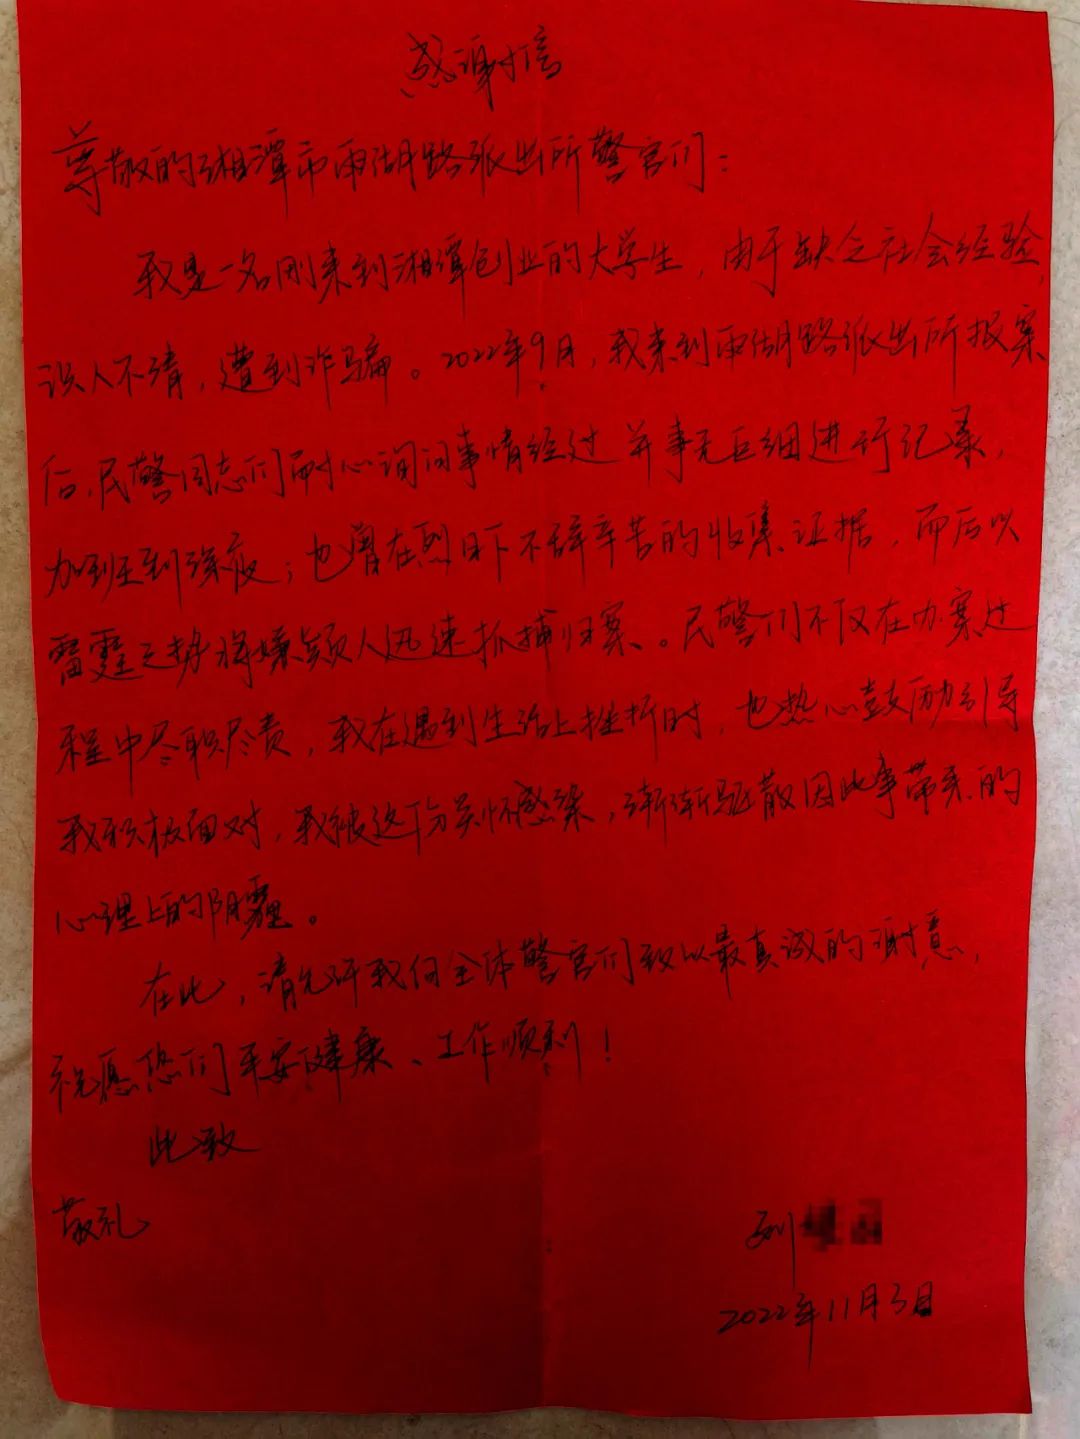 感谢信
尊敬的湘潭市雨湖路派出所警官们：
我是一名刚来到湘潭创业的大学生，由于缺乏社会经验，
识人不清，遭到诈骗。2022年9月，我来到雨湖路派出所报案
后，民警同志们耐心询问事情经过并事无巨细进行记录，
加班到深夜；也曾在烈日下不辞辛苦的收集证据，而后以
雷霆之势将嫌疑人迅速抓捕归案。民警们不仅在办案过
程中尽职尽责，我在遇到生活上挫折时，也热心鼓励引导
我积极面对，我被这份关怀感染，渐渐驱散因此事带来的
心理上的阴霾。
在此，请允许我向全体警官们致以最真诚的谢意，
祝愿您们平安健康、工作顺利！
此致
敬礼
刘
2022年11月3日